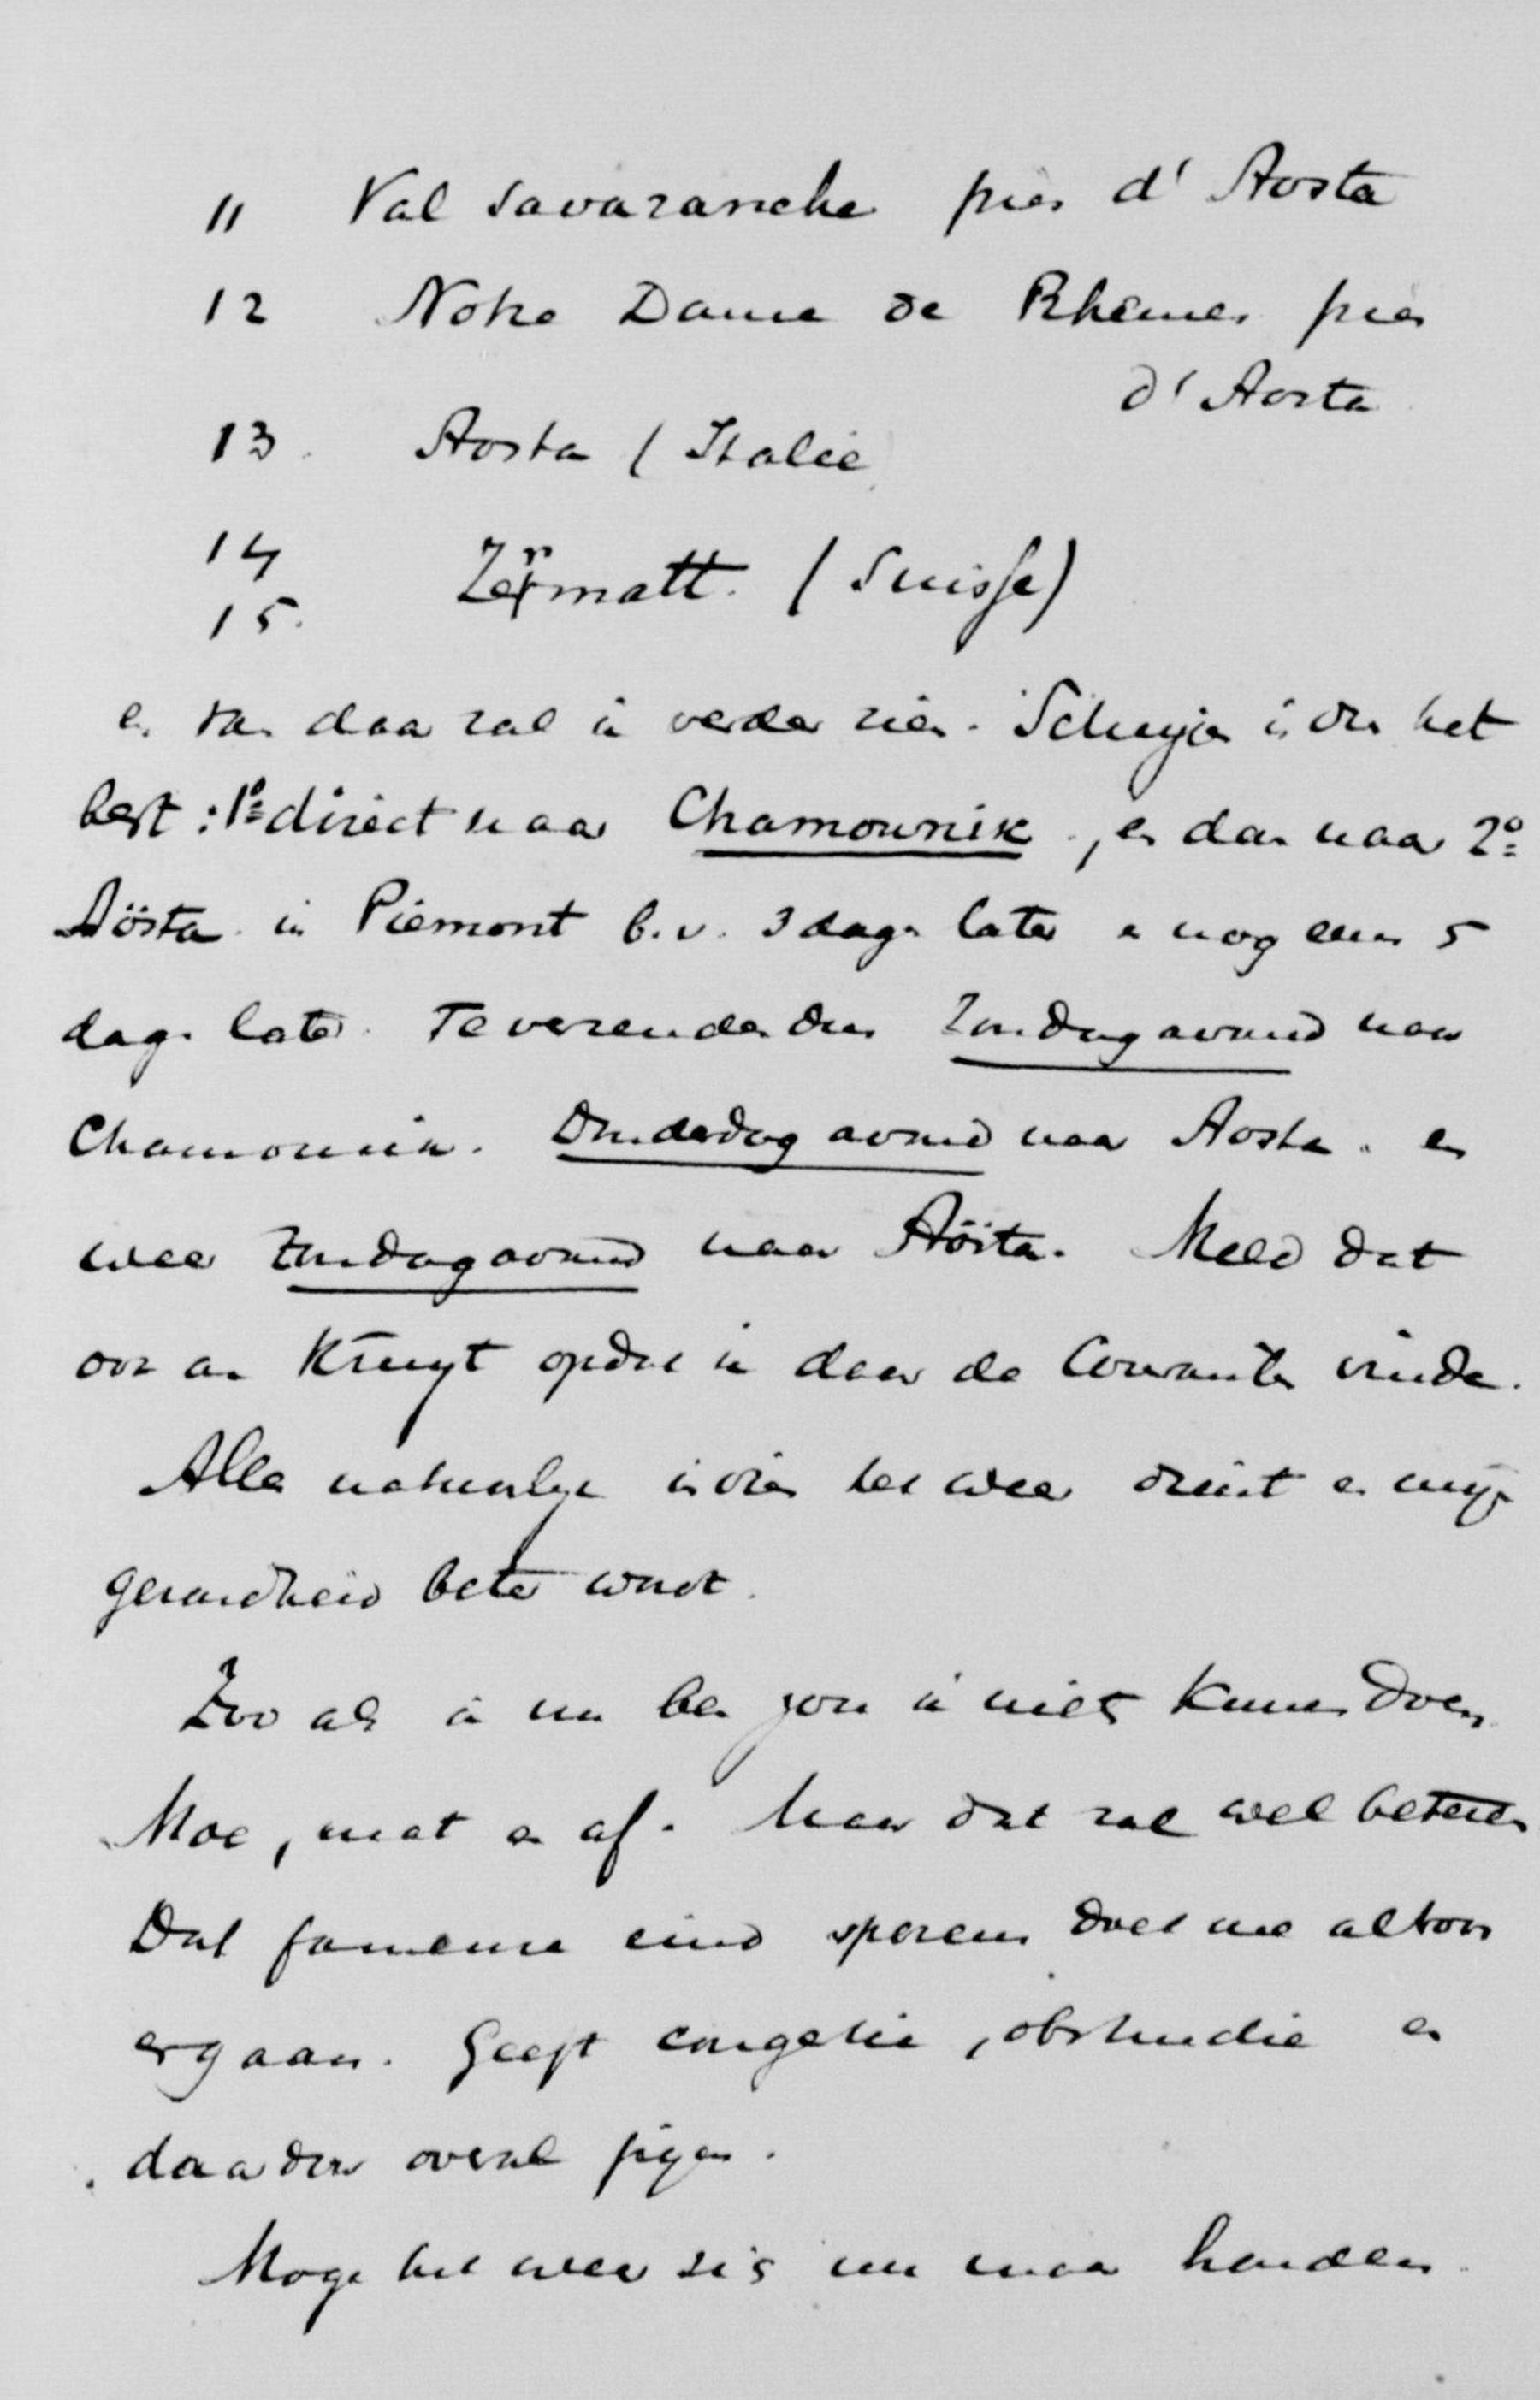 11 Val Savaranche près d'Aosta
12 Notre Dame de Rhêmes près
d'Aosta
13. Aosta (Italië)
14
15. Zermatt. (Suisse)
en van daar zal ik verder zien. Schrijven is dus het
best: 1º direct naar Chamounix, en dan naar 2º
Aösta in Piemont b.v. 3 dagen later en nog eens 5
dagen later. Te verzenden dus Zondagavond naar
Chamounix. Donderdagavond naar Aosta. en
weer Zondagavond naar Aösta. Meld dat
ook aan Kruyt opdat ik daar de Couranten vinde.
Alles natuurlijk indien het weer dient en mijn
gezondheid beter wordt.
Zoo als ik nu ben zou ik niets kunnen doen.
Moe, mat en af. Maar dat zal wel beteren
Dat fameuse eind sporens doet me altoos
erg aan. Geeft congestie, obstructie en
daardoor overal pijn.
Moge het weer zich nu maar houden.